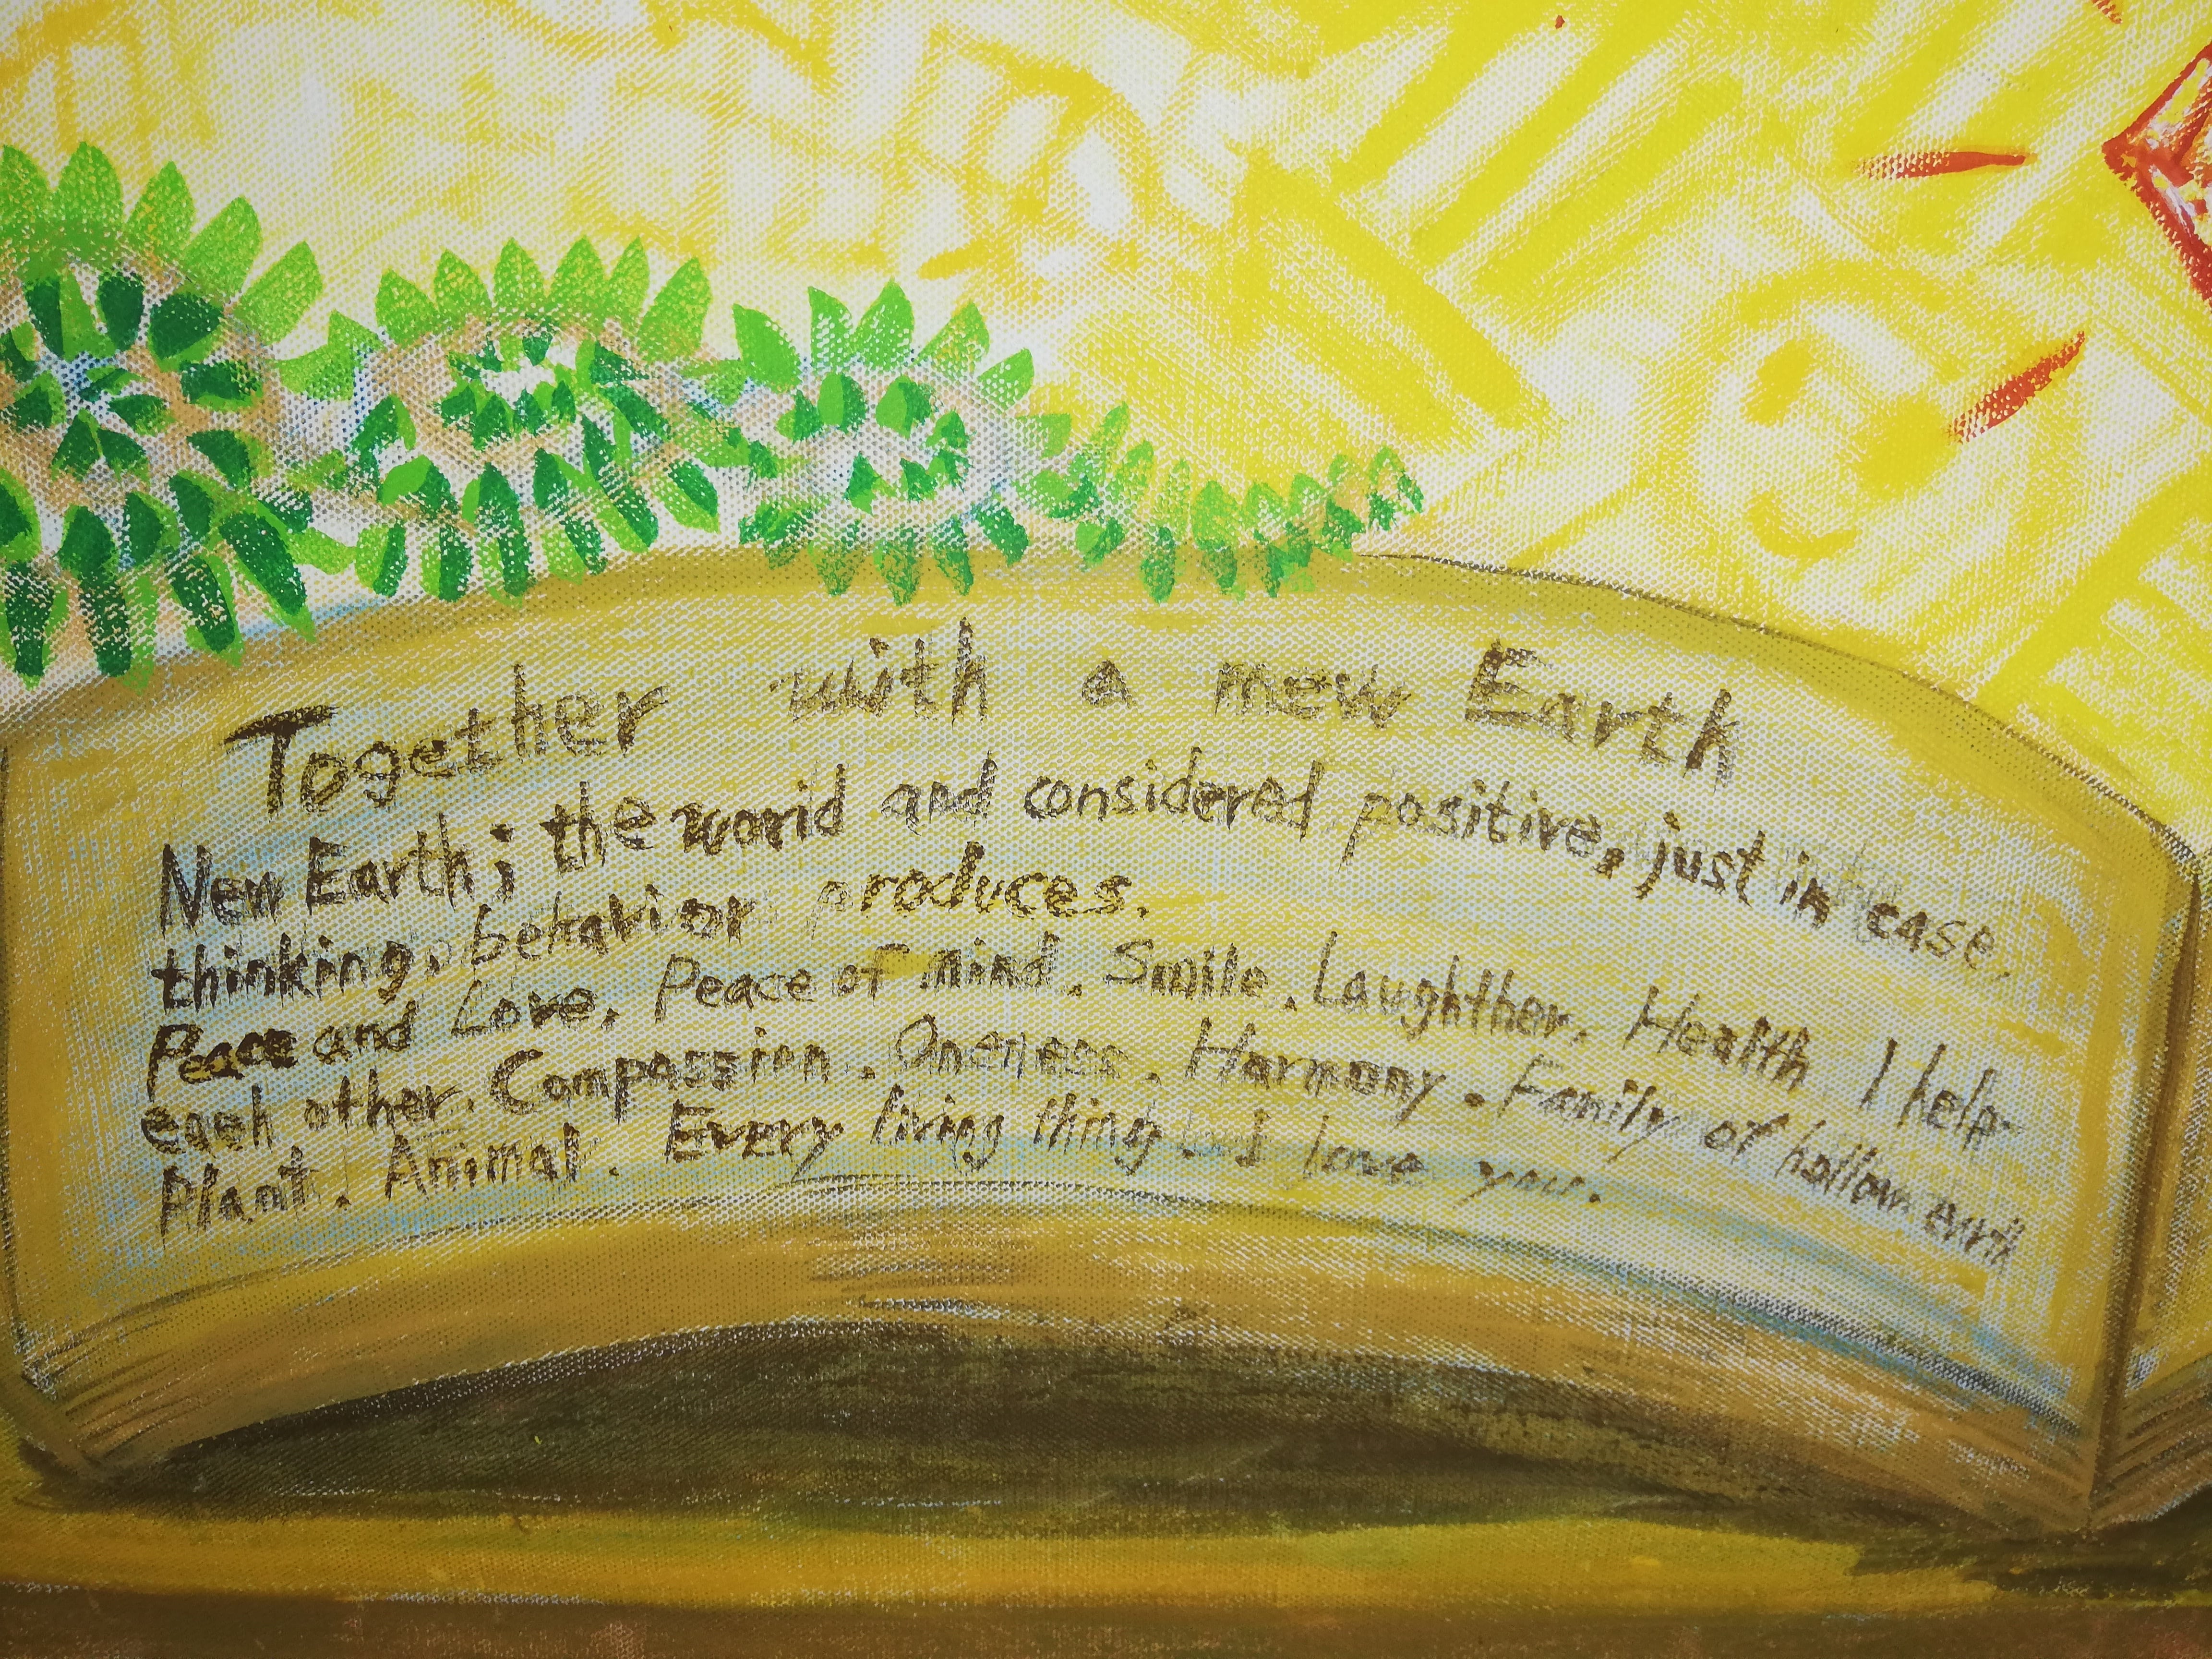 Together with a new Earth
New Earth; the world and considered positive, just in case,
thinking, behavior produces.
Peace and Love, Peace of mind. Smile. Laughther, Health I help
each other. Compassion. Oneness. Harmony. Family of hollow earth
Plant. Animal. Every living thing. I love you.